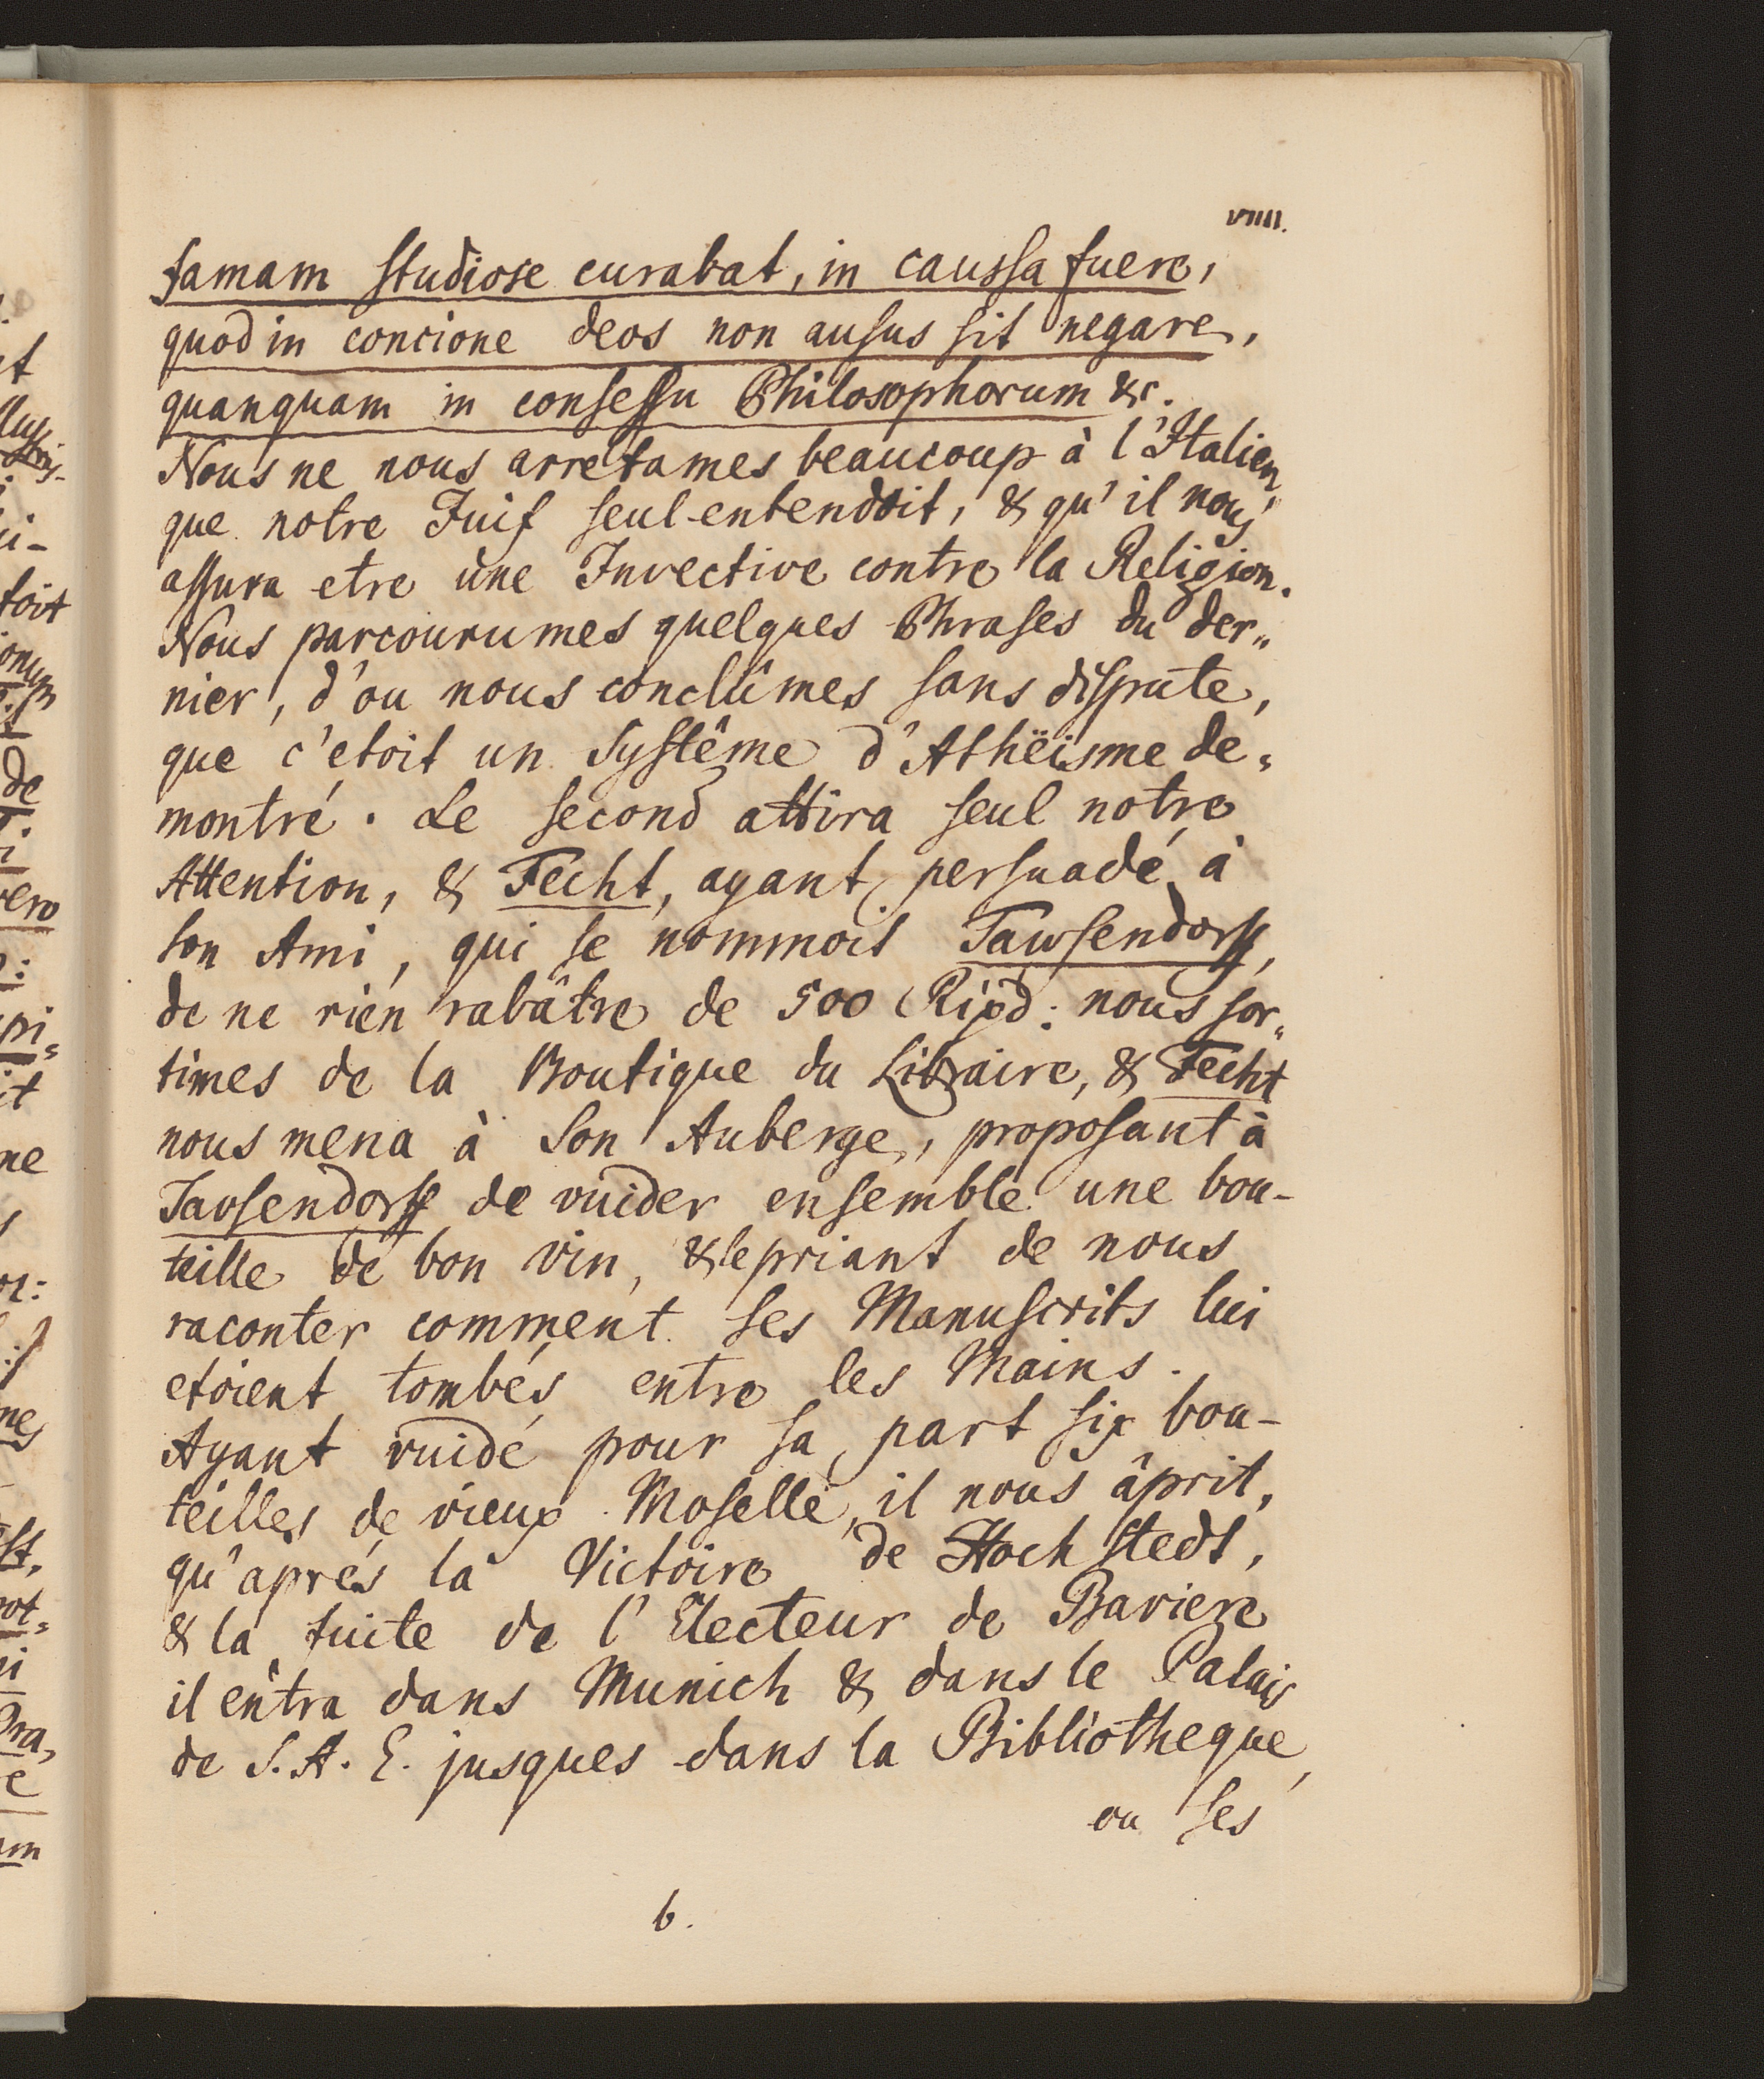 VIIII.
famam studiose curabat, in caussa fuere,
quod in concione deos non ausus sit negare,
quanquam in consessu Philosophorum &c.
Nous ne nous arretames beaucoup à l'Italien,
que notre Juif seul entendoit, & qu'il nous
assura etre une Invective contre la Religion.
Nous parcourumes quelques Phrases du der„
nier, d'ou nous conclûmes sans dispute,
que c'etoit un Systême d'Athëisme de„
montré. Le second attira seul notre
Attention, & Fecht, ayant persuadé à
son Ami, qui se nommoit Tawsendorff,
de ne rien rabâtre de 500 Rixd: nous sor„
times de la Boutique du Libraire, & Fecht
nous mena à son Auberge, proposant à
Tausendorff de vuider ensemble une bou-
teille de bon vin, & le priant de nous
raconter comment ses Manuscrits lui
etoient tombés entre les Mains.
Ayant vuidé pour sa part six bou-
teilles de vieux Moselle, il nous âprit,
qu'aprés la Victoire de Hochstedt,
& la fuite de l'Electeur de Baviere
il entra dans Munich & dans le Palais
de S. A. E. jusques dans la Bibliotheque,
ou ses
b.